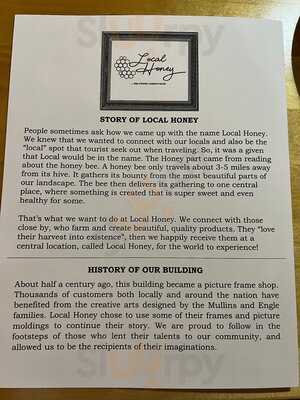 Local
Honey
STORY OF LOCAL HONEY
People sometimes ask how we came up with the name Local Honey.
We knew that we wanted to connect with our locals and also be the
“local” spot that tourist seek out when traveling. So, it was a given
that Local would be in the name. The Honey part came from reading
about the honey bee. A honey bee only travels about 3-5 miles away
from its hive. It gathers its bounty from the most beautiful parts of
our landscape. The bee then delivers its gathering to one central
place, where something is created that is super sweet and even
healthy for some.
That’s what we want to do at Local Honey. We connect with those
close by, who farm and create beautiful, quality products. They “love
their harvest into existence”, then we happily receive them at a
central location, called Local Honey, for the world to experience!
HISTORY OF OUR BUILDING
About half a century ago, this building became a picture frame shop.
Thousands of customers both locally and around the nation have
benefited from the creative arts designed by the Mullins and Engle
families. Local Honey chose to use some of their frames and picture
moldings to continue their story. We are proud to follow in the
footsteps of those who lent their talents to our community, and
allowed us to be the recipients of their imaginations.